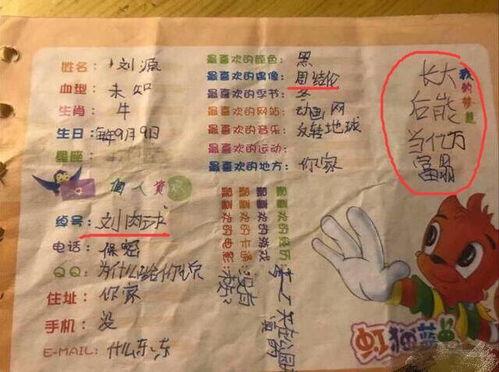 姓名: 刘源
血型: 未知
生肖: 牛
生日: 每年9月9日
星座:
個人資
绰号: 刘肉球
电话: 保密
QQ: 为什么给你
住址: 你家
手机: 没
E-MAIL: 什么东东
最喜欢的颜色: 黑
最喜欢的偶像: 周结伦
最喜欢的季节: 冬
最喜欢的网站: 动画网
最喜欢的音乐: 反转地球
最喜欢的运动:
最喜欢的地方: 你家
最喜欢的游戏
最喜欢的卡通: 没有
最喜欢的电影:
我的梦想
长大
后能
当代万
富翁
虹猫蓝